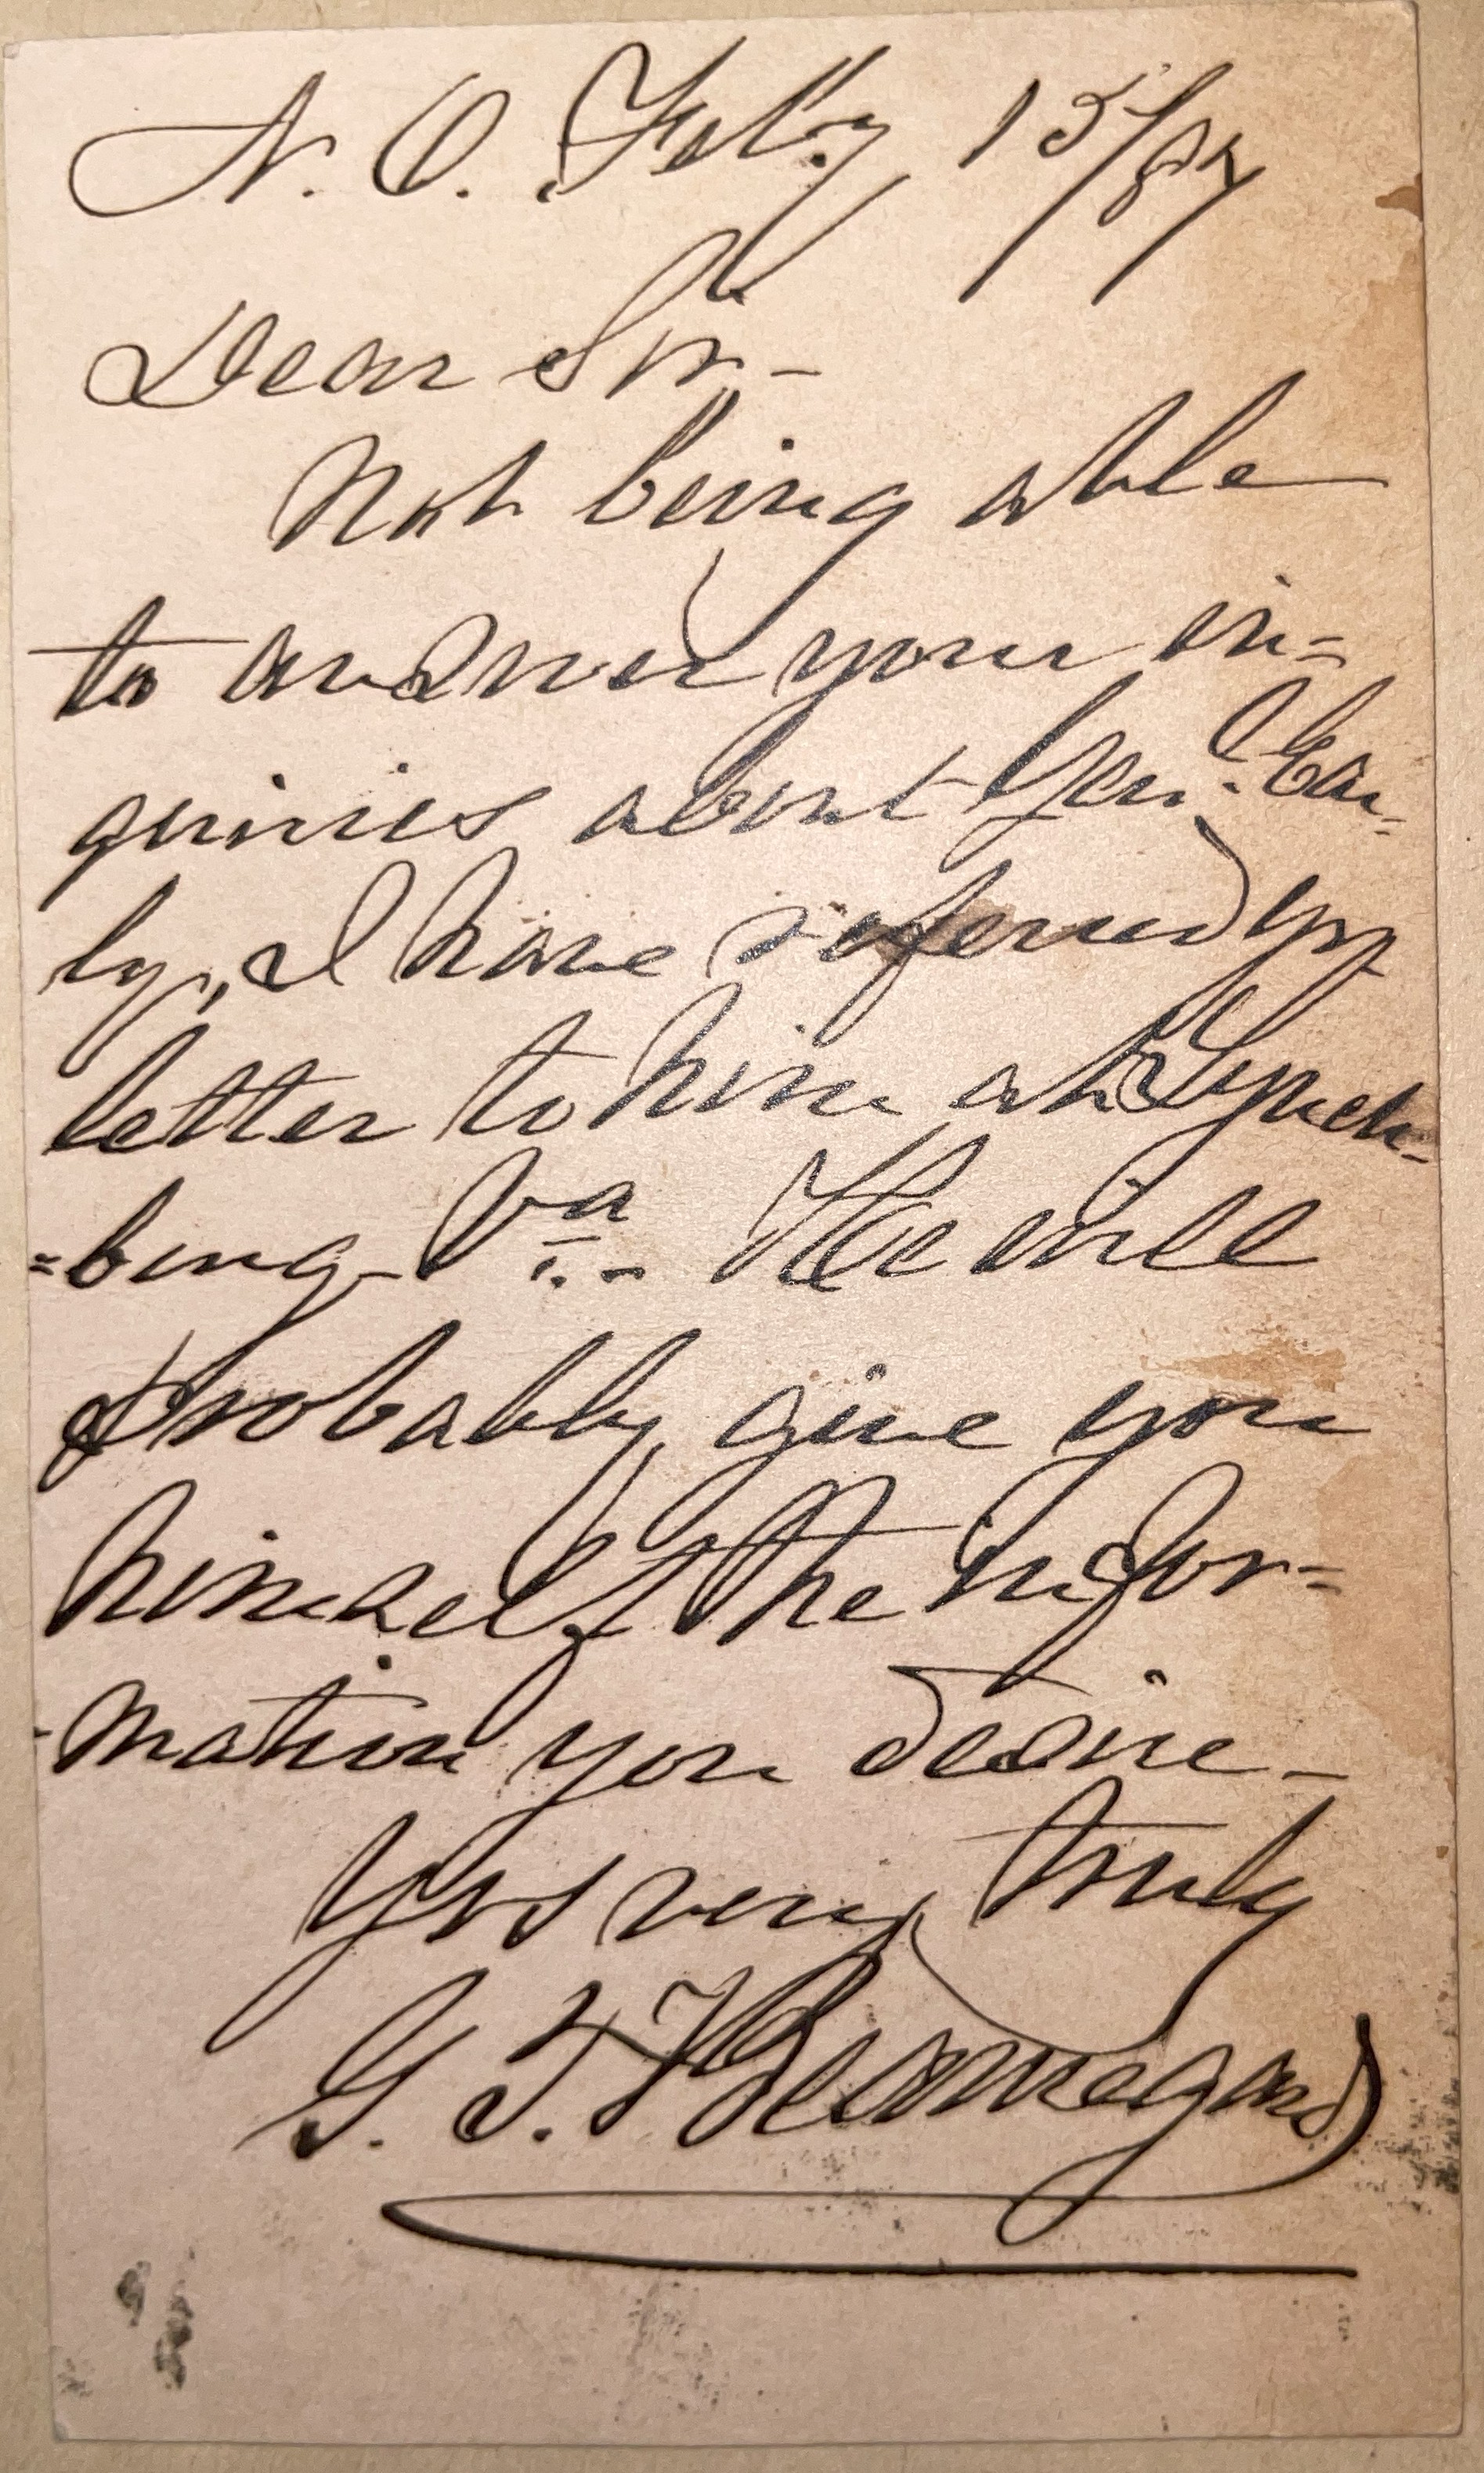 N. O. Feby 15/87
Dear Sir,-
Not being able
to answer your in=
quiries about Genl. Ear=
ly, I have referred yr
letter to him at Lynch-
=burg Va.- He will
probably give you
himself the infor=
-mation you desire-
Yrs very truly
G. T. Beauregard